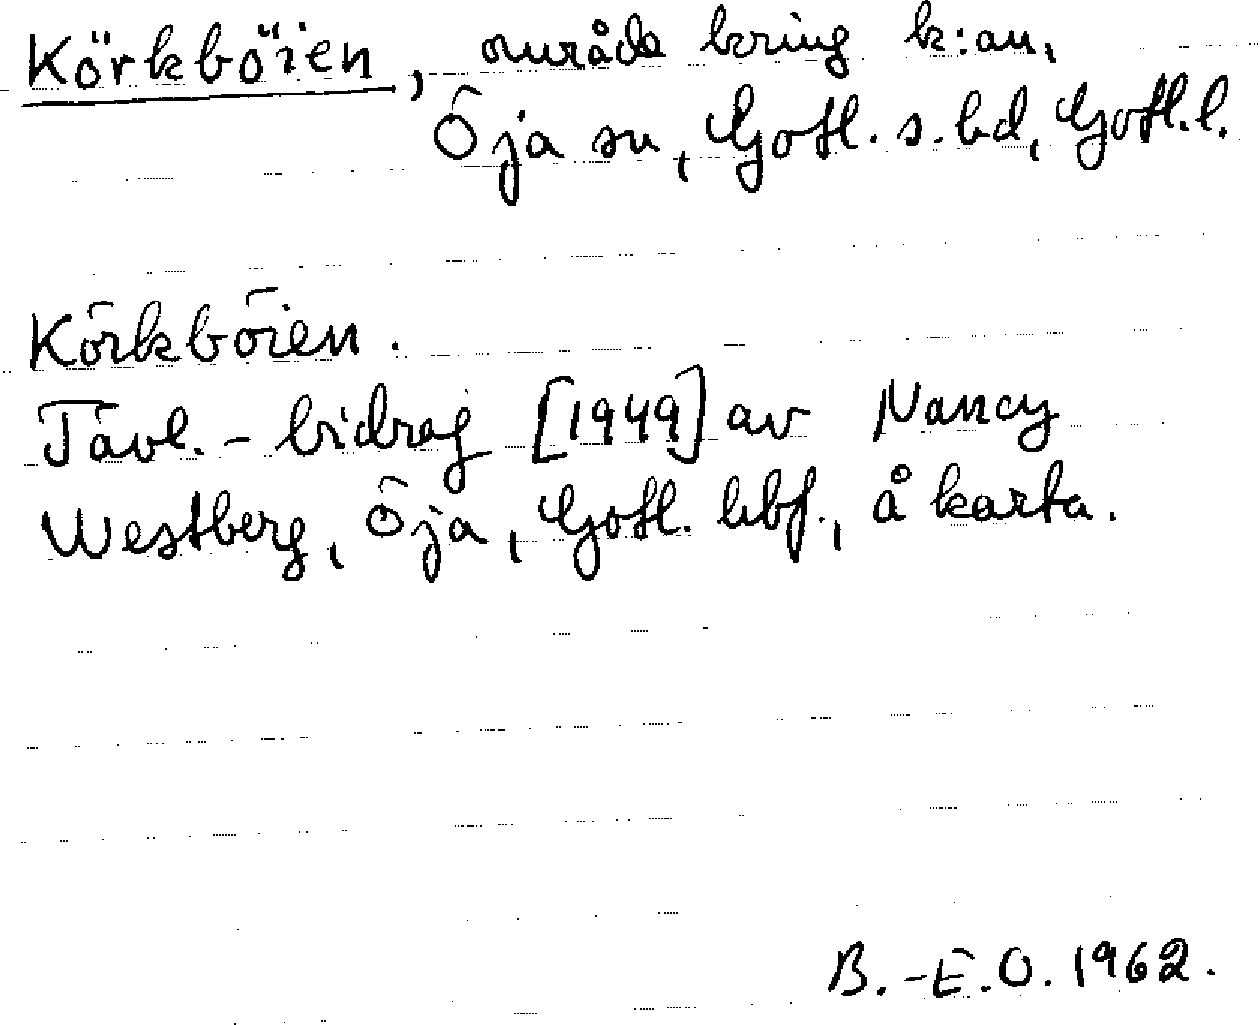 Körkböien, område kring k:an,
Öja sn, Gotl. s. hd, Gotl. l.
Körkböien.
Tävl.-bidrag [1949] av Nancy
Westberg, Öja, Gotl. hbf., å karta.
B.-E.O. 1962.